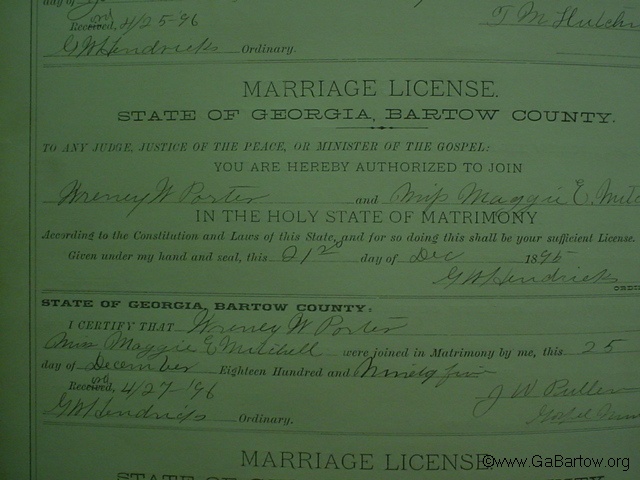 day of
Received, 4/25-96 T M Hutch
G W Hendricks Ordinary.
MARRIAGE LICENSE.
STATE OF GEORGIA, BARTOW COUNTY.
TO ANY JUDGE, JUSTICE OF THE PEACE, OR MINISTER OF THE GOSPEL:
YOU ARE HEREBY AUTHORIZED TO JOIN
Wreney W Porter and Miss Maggie E. Mitc
IN THE HOLY STATE OF MATRIMONY
According to the Constitution and Laws of this State, and for so doing this shall be your sufficient License.
Given under my hand and seal, this 21st day of Dec 1895
G W Hendricks
ORD
STATE OF GEORGIA, BARTOW COUNTY:
I CERTIFY THAT Wreney W Porter
Miss Maggie E Mitchell were joined in Matrimony by me, this 25
day of December Eighteen Hundred and Ninety five
Received, 4/27 '96 J W
G W Hendricks Ordinary. Gospel
MARRIAGE LICENSE.
STATE OF GEORGIA, BARTOW COUNTY.
©www.GaBartow.org